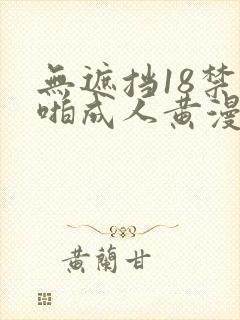 無遮挡18禁
啪成人黄漫
黃蘭甘